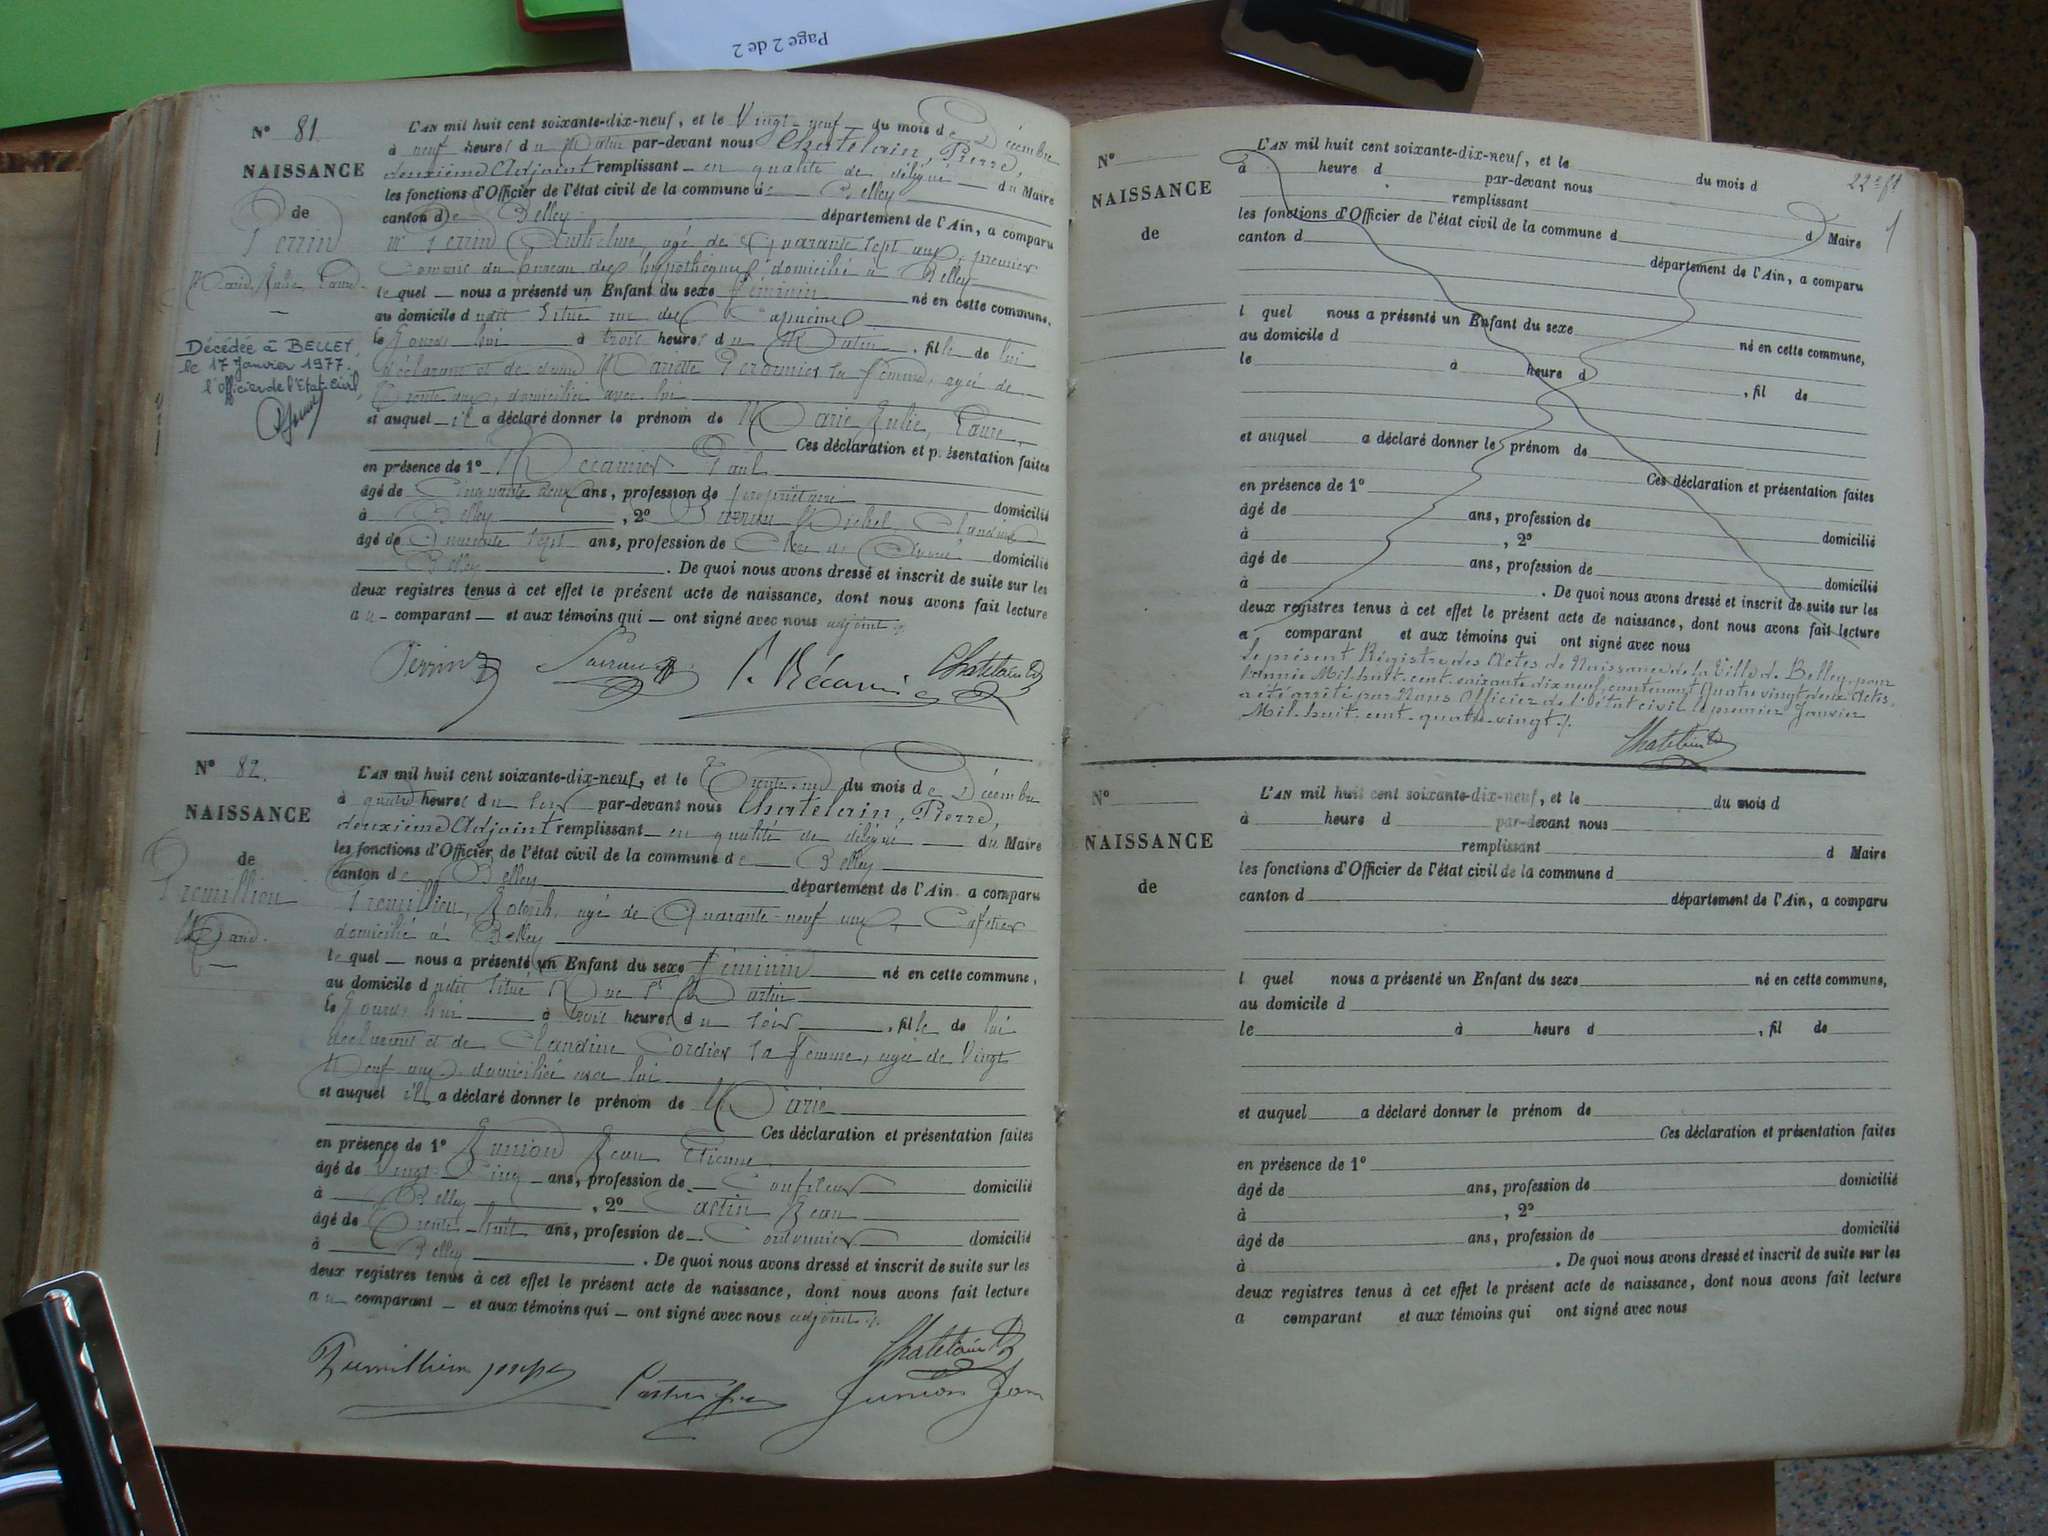 Page 2 de 2
N° 81
NAISSANCE
de
Perrin
Marie, Julie, Laure
Décédée à BELLEY,
le 17 Janvier 1977.
l'Officier de l'Etat-Civil,
L'AN mil huit cent soixante-dix-neuf, et le Vingt-neuf du mois de Décembre
à neuf heures du Matin par-devant nous Chatelain, Pierre,
deuxième Adjoint remplissant en qualité de délégué du Maire
les fonctions d'Officier de l'état civil de la commune de Belley
canton de Belley département de l'Ain, a comparu
Mr Perrin Anthelme, agé de Quarante sept ans, premier
Commis du bureau des hypothèques, domicilié à Belley
lequel nous a présenté un Enfant du sexe féminin né en cette commune,
au domicile dudit situé rue des Capucins
le Jourd'hui à trois heures du Matin, fille de lui
déclarant et de dame Mariette sa femme, agée de
Trente ans, domiciliée avec lui
et auquel il a déclaré donner le prénom de Marie, Julie, Laure,
Ces déclaration et présentation faites
en présence de 1° Récamier Paul
âgé de Cinquante deux ans, profession de propriétaire domicilié
à Belley, 2° Michel, Claudius
âgé de Quarante sept ans, profession de Clerc de domicilié
Belley. De quoi nous avons dressé et inscrit de suite sur les
deux registres tenus à cet effet le présent acte de naissance, dont nous avons fait lecture
au comparant et aux témoins qui ont signé avec nous adjoint ./.
Perrin P. Récamier Chatelain
N° 82.
NAISSANCE
de
Premillieu
Marie.
L'AN mil huit cent soixante-dix-neuf, et le Trente-un du mois de Décembre
à quatre heures du soir par-devant nous Chatelain, Pierre,
deuxième Adjoint remplissant en qualité de délégué du Maire
les fonctions d'Officier de l'état civil de la commune de Belley
canton de Belley département de l'Ain a comparu
Premillieu, Joseph, agé de Quarante-neuf ans, Cafetier
domicilié à Belley
lequel nous a présenté un Enfant du sexe féminin né en cette commune,
au domicile dudit situé Rue St Martin
le Jourd'hui à trois heures du soir, fille de lui
déclarant et de Claudine Cordier sa femme, agée de Vingt
Neuf ans domiciliée avec lui
et auquel il a déclaré donner le prénom de Marie
Ces déclaration et présentation faites
en présence de 1° Junion Jean Etienne
âgé de Vingt-Cinq ans, profession de Confiseur domicilié
à Belley, 2° Castin Jean
âgé de Trente-huit ans, profession de Cordonnier domicilié
à Belley. De quoi nous avons dressé et inscrit de suite sur les
deux registres tenus à cet effet le présent acte de naissance, dont nous avons fait lecture
au comparant et aux témoins qui ont signé avec nous adjoint ./.
Chatelain
Premillieu joseph Junion Jean
22e ft
1
N°
NAISSANCE
de
L'AN mil huit cent soixante-dix-neuf, et le du mois d
à heure d par-devant nous
remplissant d Maire
les fonctions d'Officier de l'état civil de la commune d
canton d département de l'Ain, a comparu
l quel nous a présenté un Enfant du sexe né en cette commune,
au domicile d
le à heure d , fil de
et auquel a déclaré donner le prénom de
Ces déclaration et présentation faites
en présence de 1°
âgé de ans, profession de domicilié
à , 2°
âgé de ans, profession de domicilié
à . De quoi nous avons dressé et inscrit de suite sur les
deux registres tenus à cet effet le présent acte de naissance, dont nous avons fait lecture
a comparant et aux témoins qui ont signé avec nous
Le présent Régistre des Actes de Naissance de la Ville de Belley pour
l'année Mil-huit-cent-soixante-dix-neuf, contenant Quatre vingt deux Actes,
a été arrêté par Nous Officier de l'état civil le premier Janvier
Mil-huit-cent-quatre-vingt ./.
Chatelain
N°
NAISSANCE
de
L'AN mil huit cent soixante-dix-neuf, et le du mois d
à heure d par-devant nous
remplissant d Maire
les fonctions d'Officier de l'état civil de la commune d
canton d département de l'Ain, a comparu
l quel nous a présenté un Enfant du sexe né en cette commune,
au domicile d
le à heure d , fil de
et auquel a déclaré donner le prénom de
Ces déclaration et présentation faites
en présence de 1°
âgé de ans, profession de domicilié
à , 2°
âgé de ans, profession de domicilié
à . De quoi nous avons dressé et inscrit de suite sur les
deux registres tenus à cet effet le présent acte de naissance, dont nous avons fait lecture
a comparant et aux témoins qui ont signé avec nous